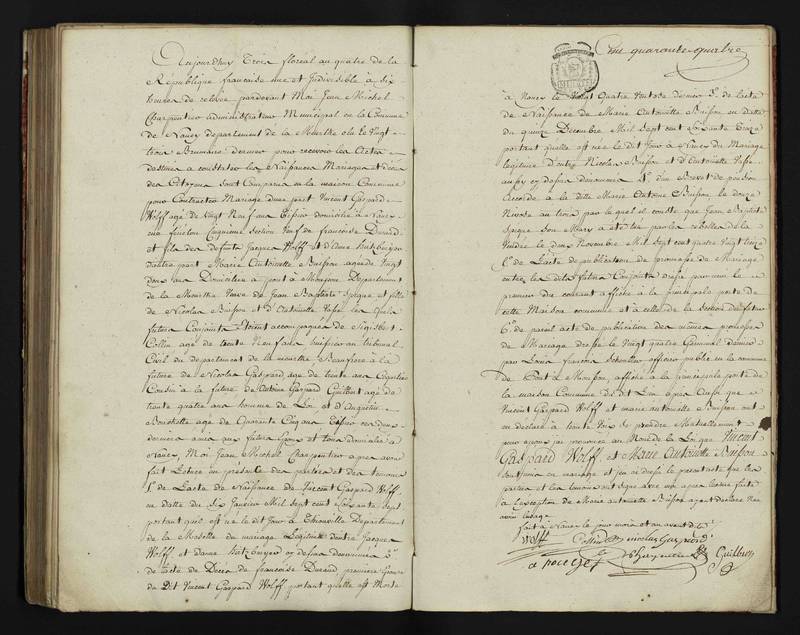 Aujourdhuy Trois floréal an quatre de la
Republique francaise une et Indivisible à Six
heures de relevée pardevant Moi Jean Michel
Charpentier administrateur Municipal en la Commune
de Nancy Departement de la Meurthe élu le Vingt
trois Brumaire dernier pour recevoir les Actes
destinés à constater les Naissances Mariages et Décès
des Citoyens Sont Comparus en la maison Commune
pour Contracter Mariage d'une part Vincent Gaspard
Wolff agé de Vingt Neuf ans domicilié à Nancy
Cinquieme Section Veuf de francoise Durand
et fils des defunts Jacques Wolff et d'Anne
d'autre part Marie Antoinette Buisson agée de Vingt
deux ans Domiciliée à pont à Mousson Departement
de la Meurthe Veuve de Jean Baptiste Spique et fille
de Nicolas Buisson et d'Antoinette les quels
futurs Conjoints étoient accompagnés de Sigisbert
Collin agé de trente Neuf ans huissier au tribunal
Civil du departement de la meurthe Beaufrere à la
future de Nicolas Gaspard agé de trente ans
Cousin à la future de Gaspard Guillout agé de
trente quatre ans homme de Loi et d'Augustin
Bouchotte agé de Quarante Cinq ans les deux
derniers amis aux futurs Epoux et tous domiciliés à
Nancy, Moi Jean Michel Charpentier apres avoir
fait Lecture en presence des parties et des temoins
1º de L'acte de Naissance de Vincent Gaspard Wolff
en datte du six Janvier Mil Sept cent Soixante Sept
portant quil est né le dit Jour à Thionville Departement
de la Moselle du mariage Légitime d'entre Jacques
Wolff et danne 2º
de L'acte de Décès de francoise Durand premiere femme
du Dit Vincent Gaspard Wolff portant quelle est Morte
Cent quarante-quatre
à Nancy le Vingt Quatre Ventose dernier 3º de L'acte
de Naissance de Marie Antoinette Buisson en datte
du quinze Decembre Mil Sept cent Soixante Treize
portant quelle est née le dit Jour à Nancy du Mariage
légitime d'entre Nicolas Buisson et d'Antoinette
aussy cy dessus dénommés 4º d'un Brevet de pension
accordé à la ditte Marie Antoinette Buisson le douze
Nivose an trois par le quel il conste que Jean Baptiste
Spique Son Mary a été tué par les rebelles de la
Vendée le deux Novembre Mil Sept cent quatre Vingt treize
5º de L'acte de publication de promesse de Mariage
entre les dits futurs Conjoints dressé par moi le
premier du courant affiché à la principale porte de
cette Maison commune et à celle de la Section du futur
6º de pareil acte de publication des mêmes promesses
de Mariage dressé le Vingt quatre Germinal dernier
par Louis françois officier public en la commune
de Pont à Mousson, affiché à la principale porte de
la maison Commune du dit Lieu après aussi que
Vincent Gaspard Wolff et marie antoinette Buisson ont
eu declaré à haute Voix se prendre Mutuellement
pour epoux j'ai prononcé au Nom de la Loi que Vincent
Gaspard Wolff et Marie Antoinette Buisson
sont unis en mariage et j'en ai dressé le present acte que les
parties et les temoins ont signé avec moi apres lecture faite
à l'exception de Marie antoinette Buisson ayant declaré n'en
avoir l'usage
fait à Nancy les jour mois et an avant dits
Wolff Collin Nicolas Gaspard
Charpentier Guillout